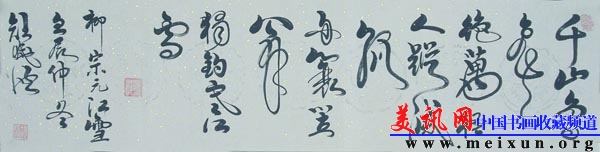 千山鳥
飛
絕萬徑
人蹤滅
孤
舟蓑笠
翁
獨釣寒江
雪
柳宗元江雪
壬辰仲冬
美讯网 中国书画收藏频道
www.meixun.org